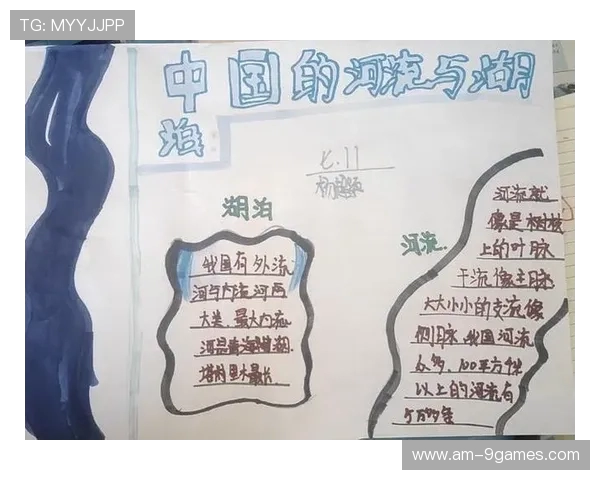 TG: MYYJJPP
中国的河流与湖
泊
七.11
湖泊
我国有外流
河与内流河两
大类、最大内流
河是
塔里木最长
河流
河流就
像是树枝
上的叶脉
干流像主脉
大大小小的支流像
侧脉.我国河流
众多、100平方千米
以上的河流有
5万多条
www.am-9games.com